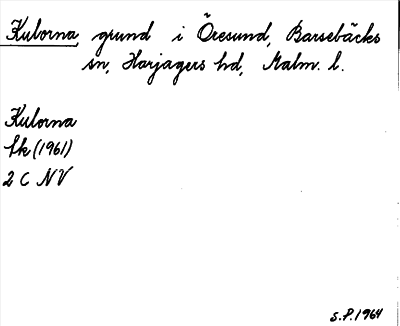 Kulorna, grund i Öresund, Barsebäcks
sn, Harjagers hd, Malm. l.
Kulorna
Sk (1961)
2 C NV
S.P. 1964